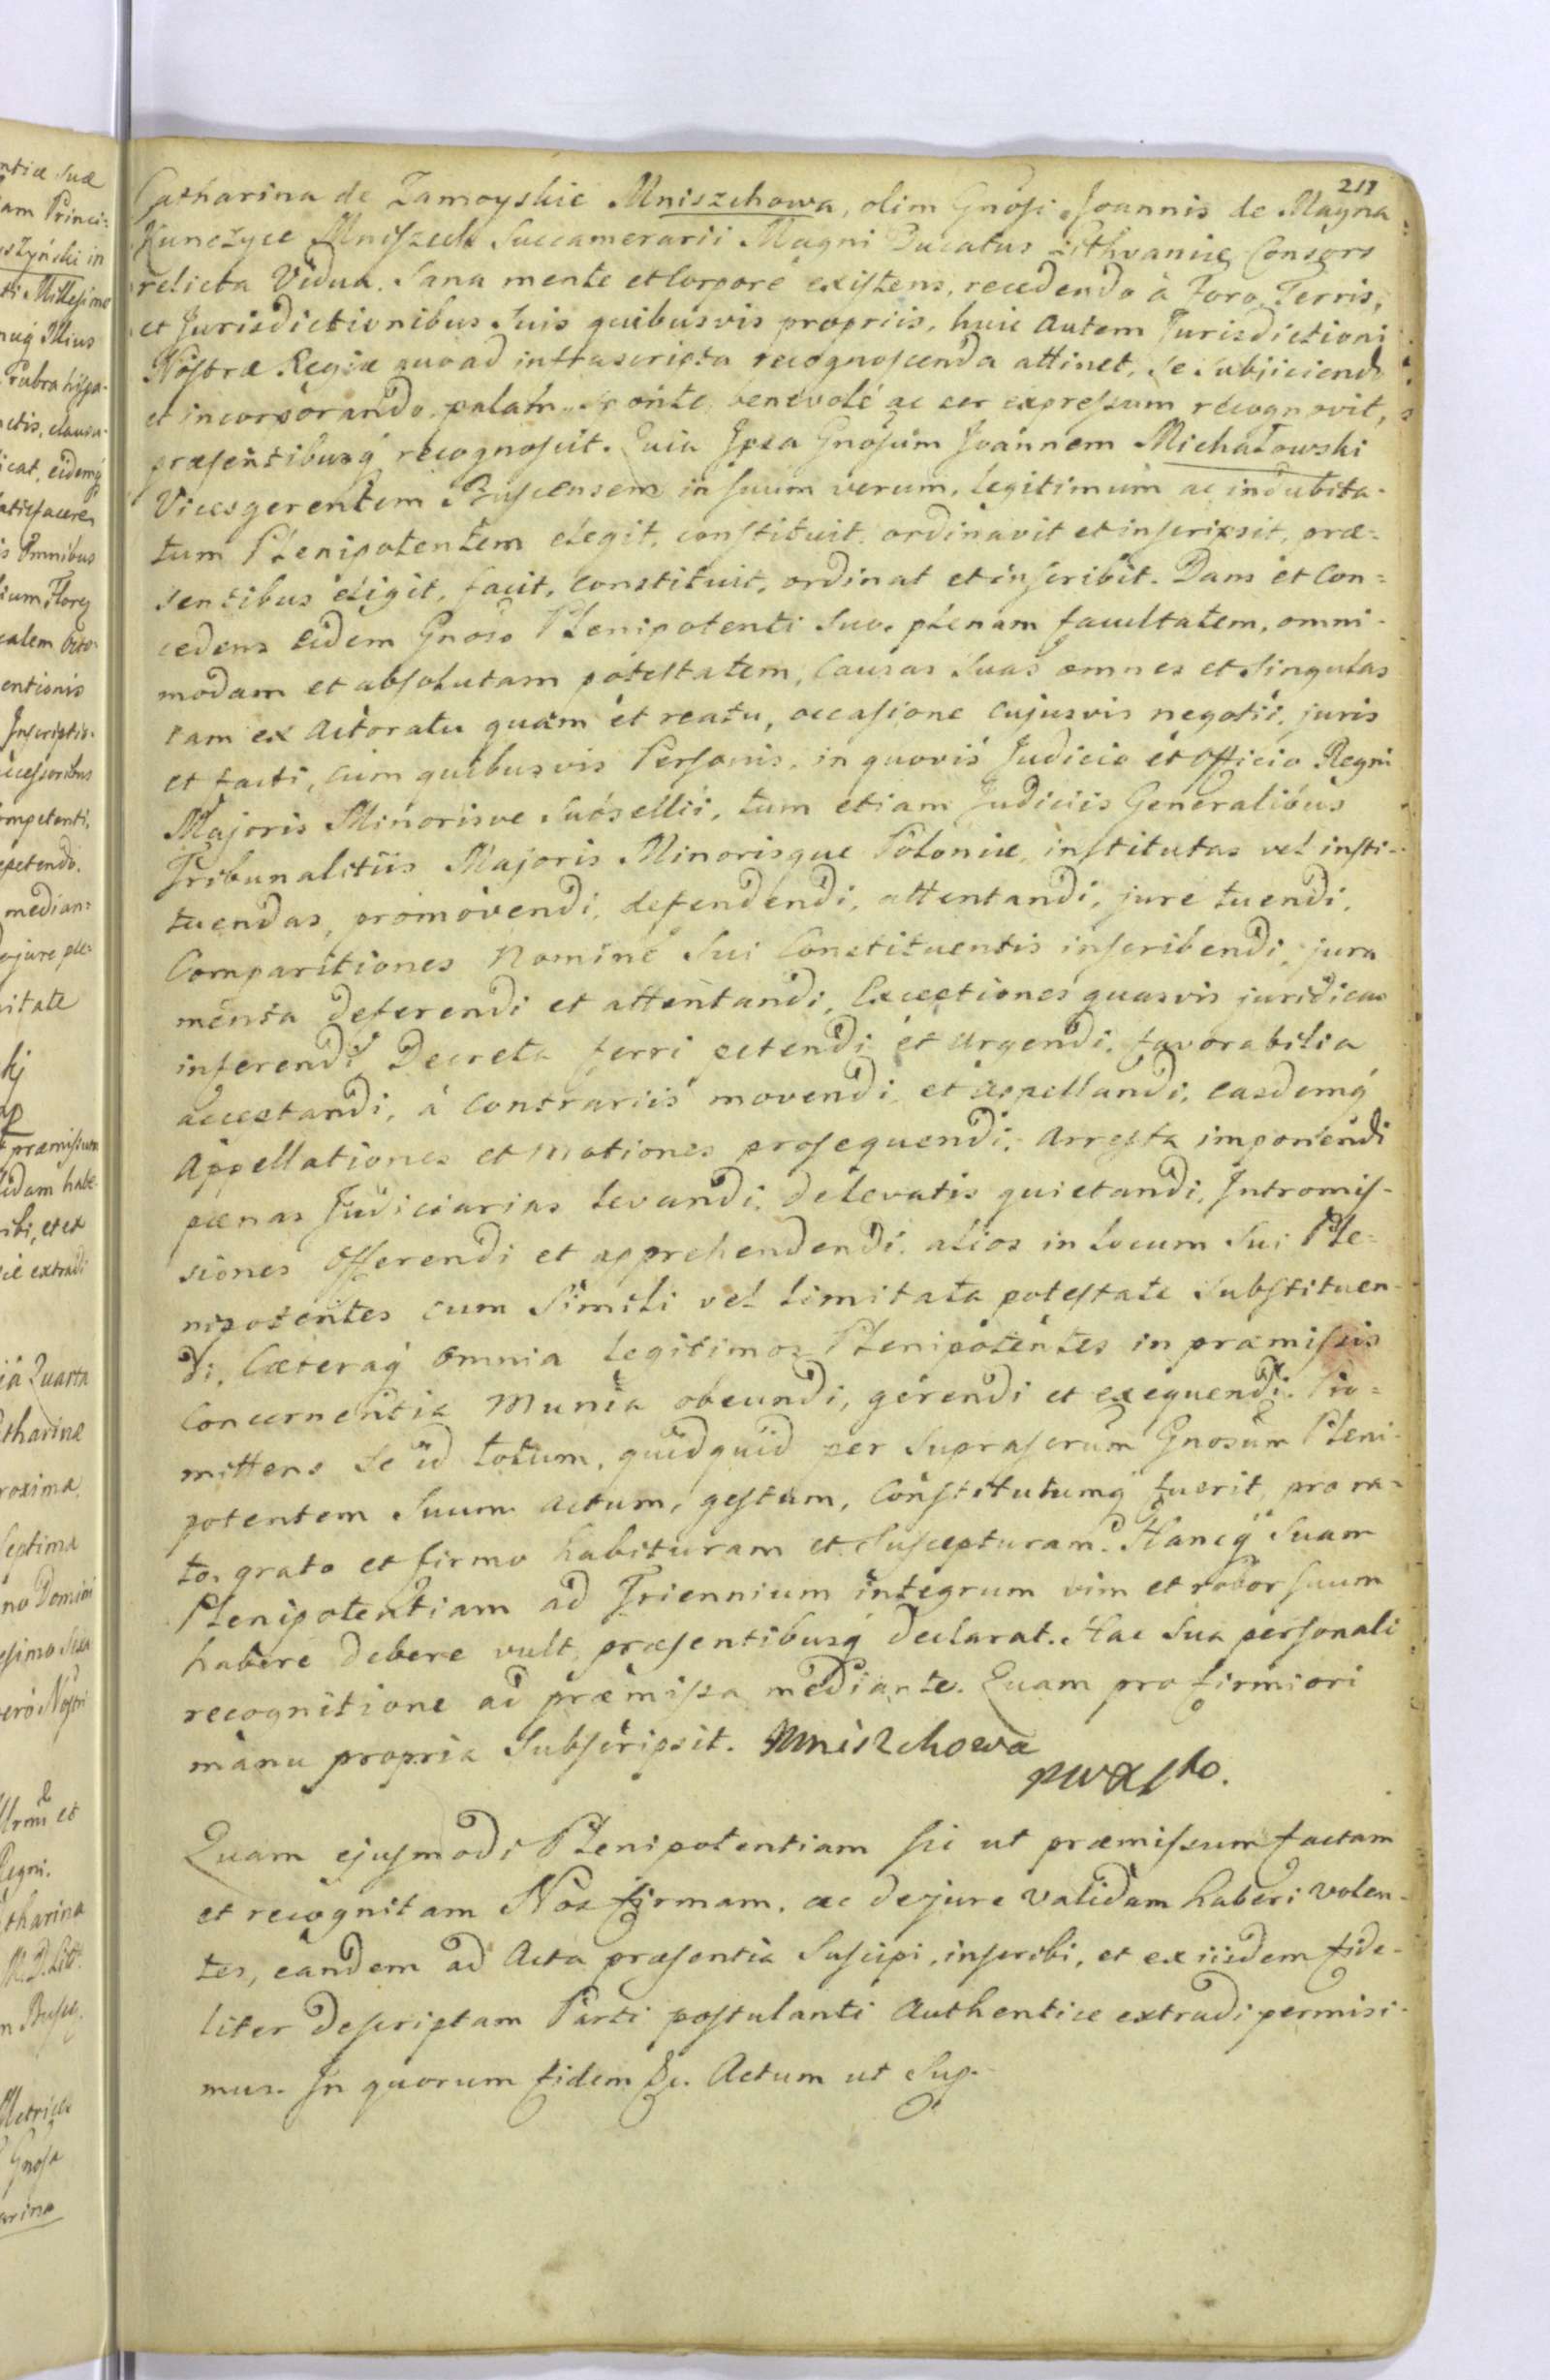 217
Catharina de Zamoyskie Mniszchowa, olim Gnosi Joannis de Magna
Kunczyce Mniszech Succamerarii Magni Ducatus Lithvaniæ Consors
relicta Vidua. Sana mente et Corpore existens, recedendo à Foro, Terris,
et Jurisdictionibus Suis quibusvis propriis, huic autem Jurisdictioni
Nostræ Regiæ quoad infrascripta recognoscenda attinet, se subjiciendo
et incorporando, palam, sponte, benevolé ac per expressum recognovit,
præsentibusq́ recognoscit. Quia Ipsa Gnosum Joannem Michałowski
Vicesgerentem Buscensem in suum verum, legitimum ac indubita-
tum Plenipotentem elegit, constituit, ordinavit et inscripsit, præ=
sentibus eligit, facit, constituit, ordinat et inscribit. Dans et Con=
cedens eidem Gnoso Plenipotenti Suo, plenam facultatem, omni-
modam et absolutam potestatem, Causas Suas omnes et Singulas
tam ex Actoratu quàm et reatu, occasione cujusvis negotii, juris
et facti, cum quibusvis Personis, in quovis Judicio et Officio Regni
Majoris Minorisve Subsellii, tum etiam Judiciis Generalibus
Tribunalitiis Majoris Minorisque Poloniæ, institutas vel insti-
tuendas, promovendi, defendendi, attentandi, jure tuendi,
Comparitiones Nomine Sui Constituentis inscribendi, jura
menta deferendi et attentandi, Exceptiones quasvis juridicas
inferendi, Decreta ferri petendi et Urgendi, favorabilia
acceptandi, à Contrariis movendi et appellandi, easdemq́
Appellationes et Motiones prosequendi, Arresta imponendi
pænas Judiciarias levandi, de levatis quietandi, Intromis-
siones Offerendi et apprehendendi, alios in locum Sui Ple=
nipotentes cum Simili vel limitata potestate Substituen-
di, Cæteraq́ Omnia legitimos Plenipotentes in præmissis
Concernentia Munia obeundi, gerendi et exequendi. Pro=
mittens Se id totum, quidquid per Suprascrum Gnosum Pleni-
potentem Suum actum, gestum, Constitutumq́ fuerit, pro ra-
to, grato et firmo habituram et Suscepturam. Hancq́ Suam
Plenipotentiam ad Triennium integrum vim et robor suum
habere debere vult, præsentibusq́ declarat. Hac Sua personali
recognitione ad præmissa mediante. Quam pro firmiori
manu propria Subscripsit. Mniszchowa
Quam ejusmodi Plenipotentiam sic ut præmissum factam
et recognitam Nos firmam, ac de jure validam haberi volen-
tes, eandem ad Acta præsentia Suscipi, inscribi, et ex iisdem fide-
liter descriptam Parti postulanti Authentice extradi permisi-
mus. In quorum fidem &c. Actum ut Sup.